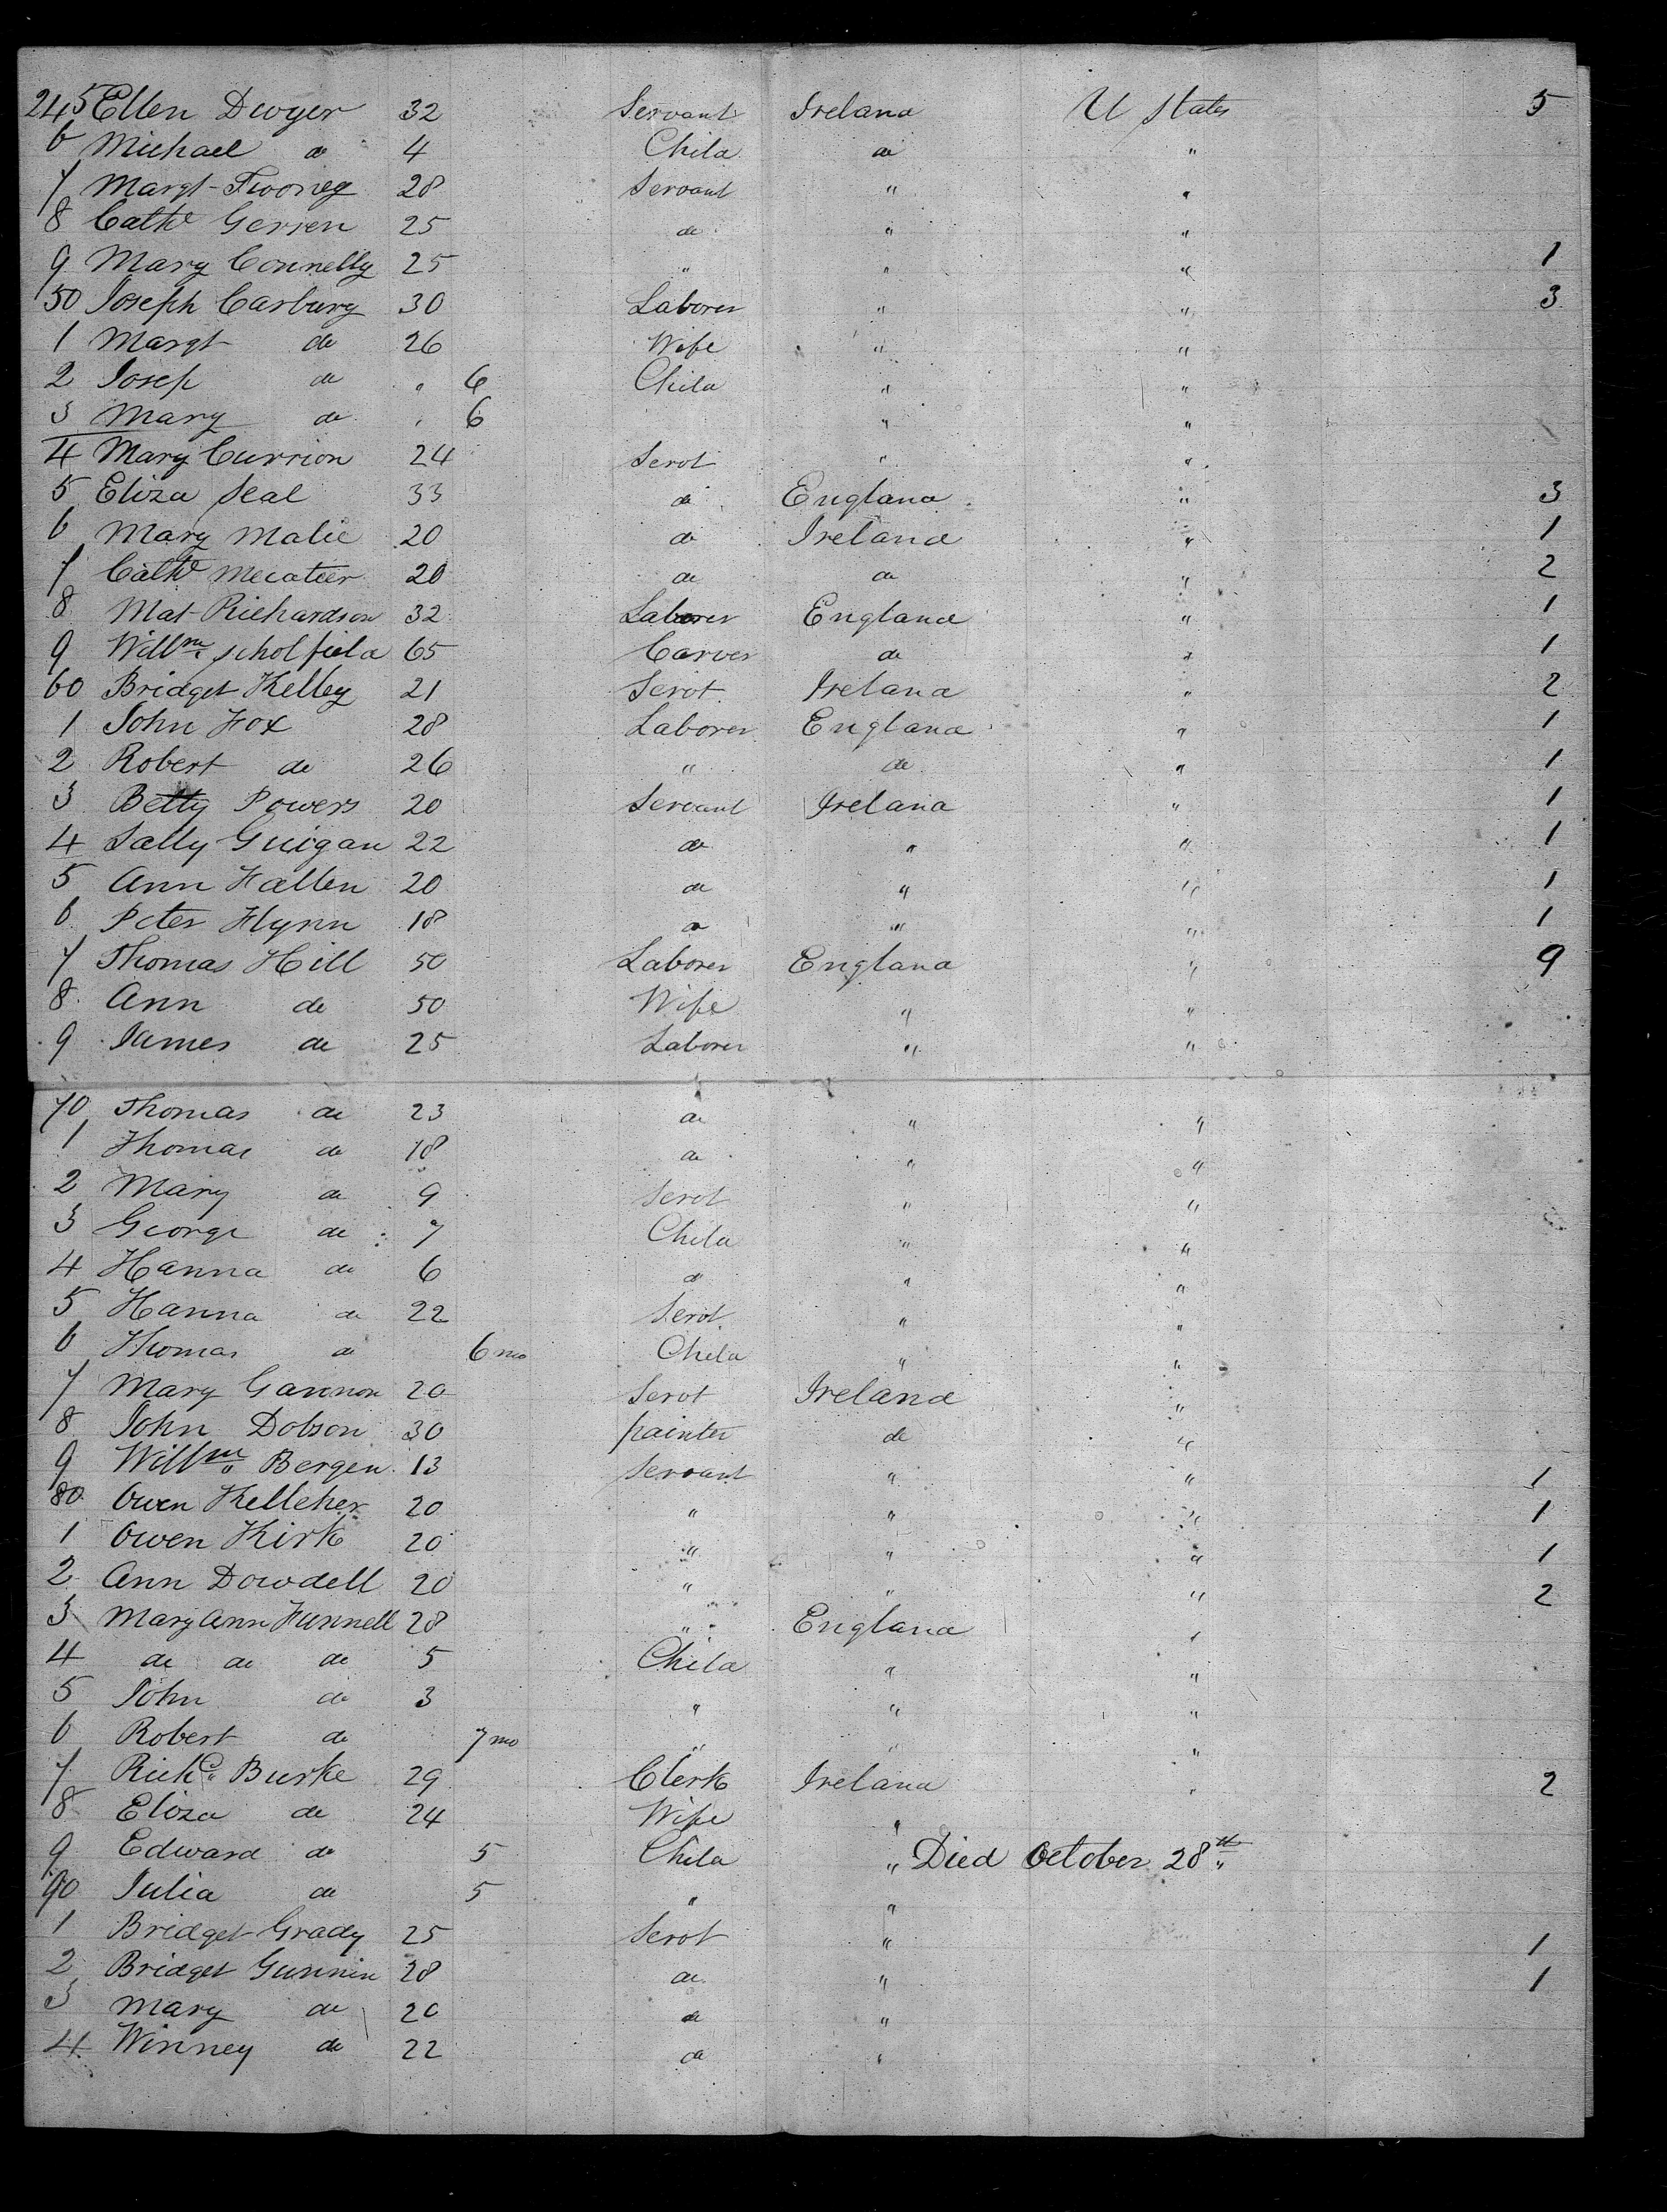 245 Ellen Dwyer 32 Servant Ireland U States 5
6 Michael do 4 Child do "
7 Margt Twoney 28 Servant " "
8 Cathe Gerren 25 do " "
9 Mary Connelly 25 " " " 1
50 Joseph Carbury 30 Laborer " " 3
1 Margt do 26 Wife " "
2 Josep do " 6 Child " "
3 Mary do " 6 " "
4 Mary Currion 24 Servt " "
5 Eliza Seal 33 do England " 3
6 Mary Malie 20 do Ireland " 1
7 Cathe Mecateer 20 do do " 2
8 Mat Richardson 32 Laborer England " 1
9 Willm Scholfield 65 Carver do " 1
60 Bridget Kelley 21 Servt Ireland " 2
1 John Fox 28 Laborer England " 1
2 Robert do 26 " do " 1
3 Betty Powers 20 Servant Ireland " 1
4 Sally Guigan 22 do " " 1
5 Ann Fallen 20 do " " 1
6 Peter Flynn 18 do " " 1
7 Thomas Hill 50 Laborer England " 9
8 Ann do 50 Wife " "
9 James do 25 Laborer " "
70 Thomas do 23 do " "
1 Thomas do 18 do " "
2 Mary do 9 Servt " "
3 George do 7 Child " "
4 Hanna do 6 do " "
5 Hanna do 22 Servt " "
6 Thomas do 6 mo Child " "
7 Mary Gannon 20 Servt Ireland "
8 John Dobson 30 painter do "
9 Willm Bergen 13 Servant " " 1
80 Owen Kelleher 20 " " " 1
1 Owen Kirk 20 " " " 1
2 Ann Dowdell 20 " " " 2
3 Mary Ann Funnell 28 " England "
4 do do do 5 Child " "
5 John do 3 " " "
6 Robert do 7 mo " " "
7 Richd Burke 29 Clerk Ireland " 2
8 Eliza do 24 Wife "
9 Edward do 5 Child " Died October 28th
90 Julia do 5 " "
1 Bridget Grady 25 Servt " 1
2 Bridget Gunnin 28 do " 1
3 Mary do 20 do "
4 Winney do 22 do "